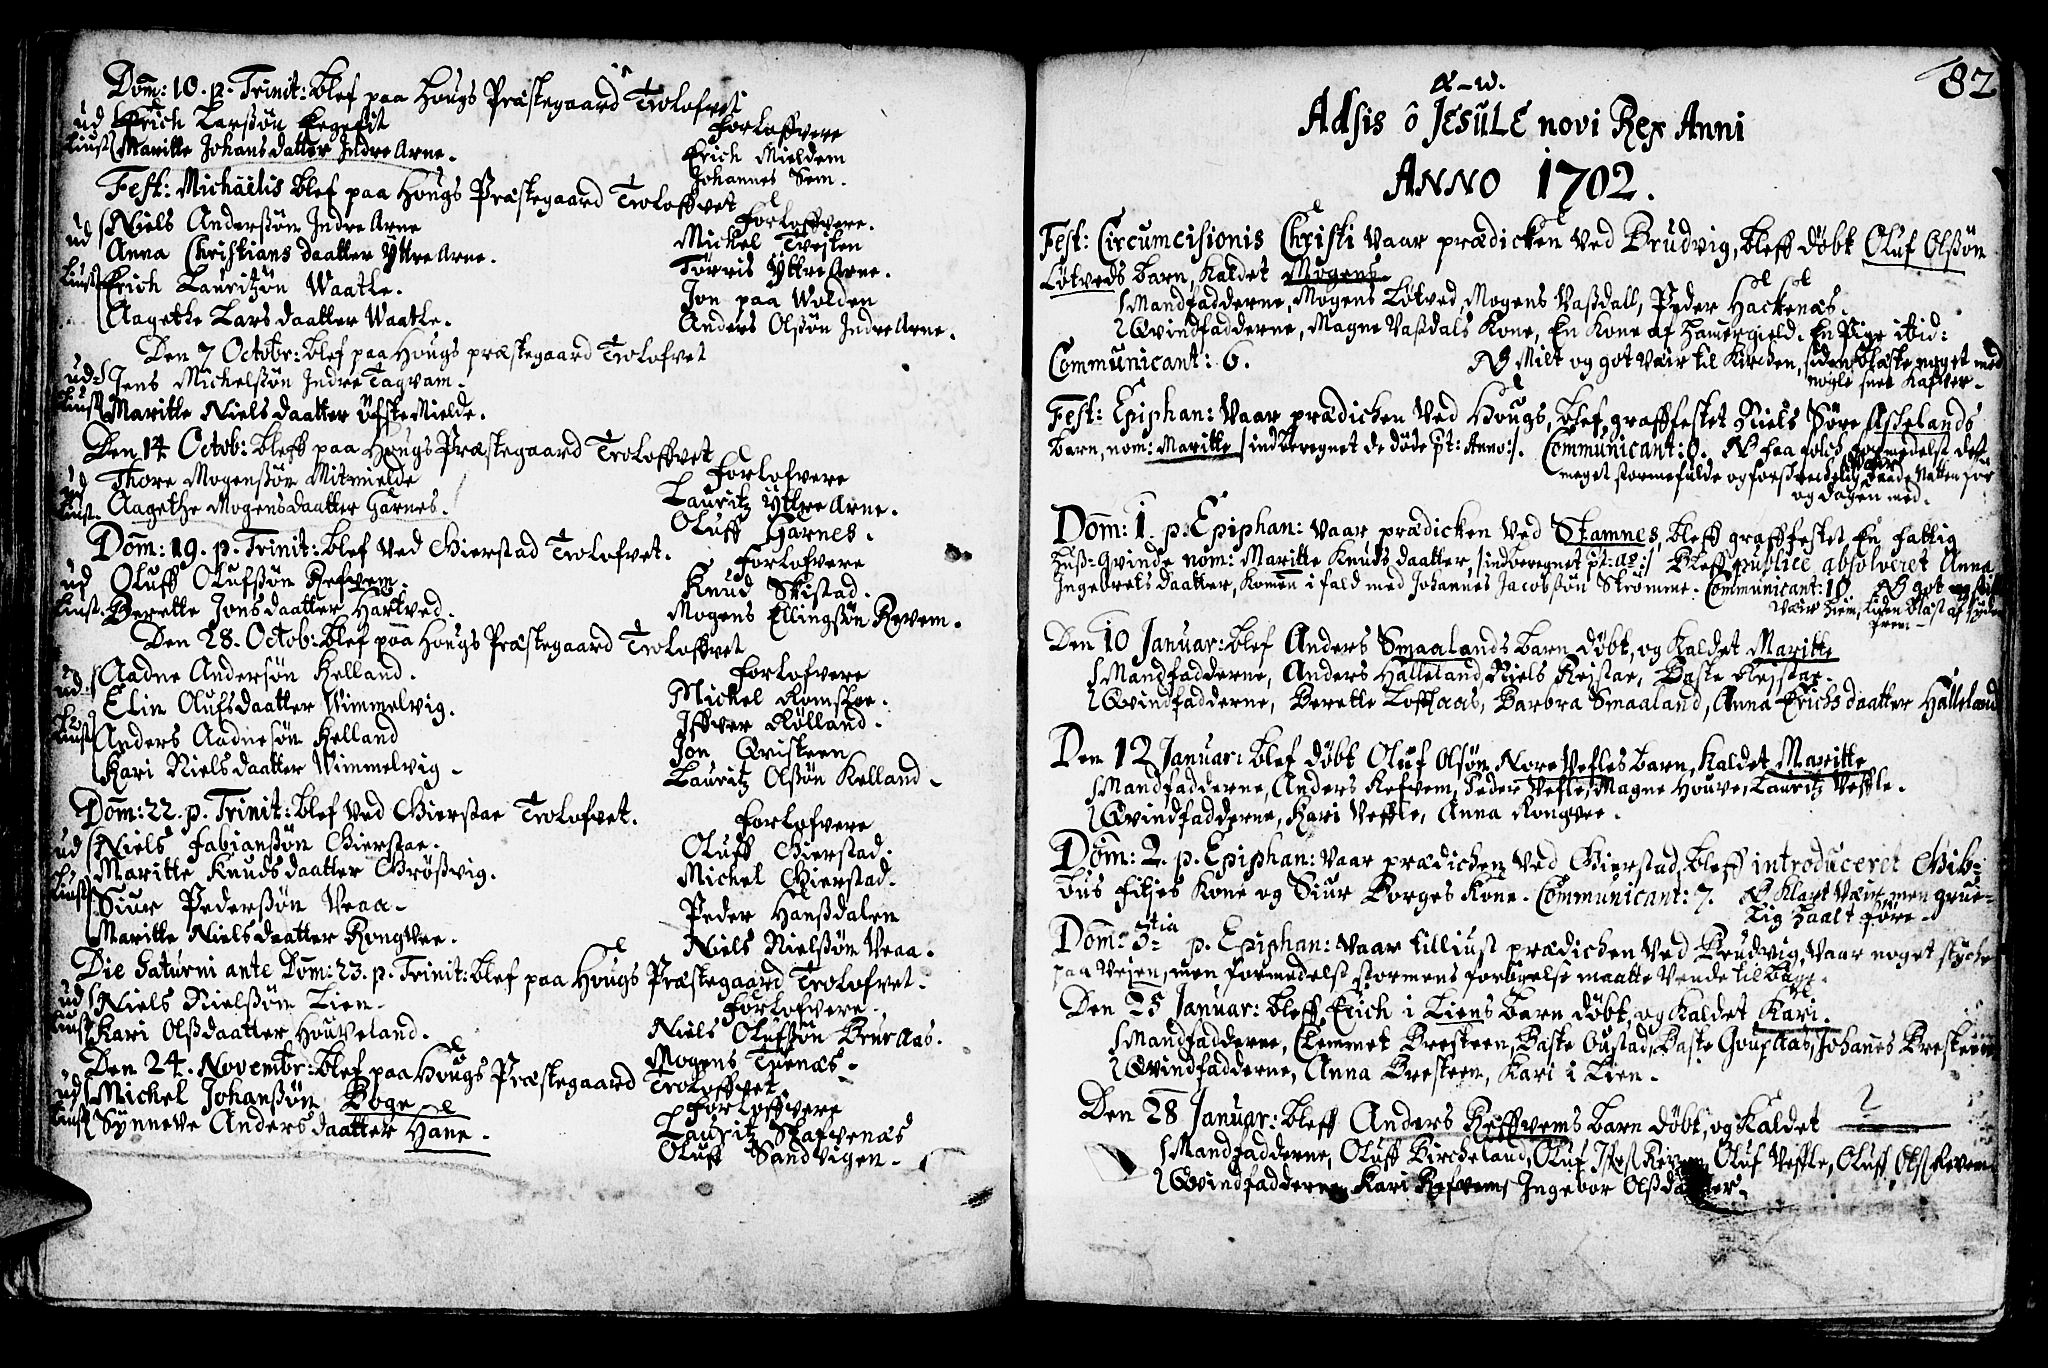 Dom̄: 10. p. Trinit: blef paa Hougs Præstegaard Trolofvet
ud Erich Larssøn Eegesit
Liust Maritte Johansdatter Indre Arne.
Forloffvere
Erich Mieldem
Johannes Sem.
Fest: Michäelis blef paa Hougs Præstegaard Troloffvet
ud Niels Anderssøn Indre Arne
Anna Christians daatter Yttre Arne.
Liust Erich Lauritzøn Waatle.
Aagethe Lars daatter Waatle.
Forloffvere.
Mickel Tvejten
Tørris Yttre Arne.
Jon paa Wolden
Anders Olssøn Indre Arne.
Den 7 Octobr: blef paa Hougs præstegaard Trolofvet
ud Jens Michelssøn Indre Tagvam.
Liust Maritte Niels daatter Øfste Mielde.
Den 14 Octob: bleff paa Hougs Præstegaard Troloffvet
ud Thore Mogenssøn Mitmielde
Liust. Aagethe Mogensdaatter Garnes.
Forlofvere
Lauritz Yttre Arne.
Oluff Garnes.
Dom̄: 19. p. Trinit: blef ved Gierstad Trolofvet.
ud Oluff Olufssøn Refvem.
Liust. Berette Jonsdaatter Hartved.
Forlofvere
Knud Skistad.
Mogens Ellingssøn Revem.
Den 28. Octob: blef paa Hougs Præstegaard Troloffvet
ud Aadne Andersøn Helland.
Elin Olufsdaatter Wimmelvig.
Liust Anders Aadnesøn Helland
Kari Niels daatter Wimmelvig.
Forlofvere
Mickel Romsloe.
Iffver Rølland.
Jon Qvisteen
Lauritz Olssøn Helland.
Dom̄: 22. p. Trinit: blef ved Gierstae Trolofvet.
ud Niels Fabianssøn Gierstae.
Maritte Knudsdaatter Grøssvig.
Liust Siur Pederssøn Veaa.
Maritte Nielsdaatter Rongvee.
Forlofvere
Oluff Gierstad.
Michel Gierstad.
Peder Hanssdalen
Niels Nielssøn Veaa.
Die Saturni ante Dom̄: 23. p. Trinit: blef paa Hougs Præstegaard Trolofvet.
ud Niels Nielssøn Lien.
Liust Kari Olssdaatter Houveland.
Forlofvere.
Niels Olufssøn Bruraas.
Mogens Tuenæs.
Den 24. Novembr: blef paa Hougs Præstegaard Troloffvet
ud Mickel Johanssøn Boge
Liust Synneve Anders daatter Hane.
Forloffvere
Lauritz Stafvenæs
Oluff Sandvigen.
82
α–ω.
Adsis ô JESULE novi Rex Anni
ANNO 1702.
Fest: Circumcisionis Christi vaar prædicken ved Brudvig, bleff døbt Oluf Olssøn
Løtveds barn, kaldet Mogens
Mandfadderne, Mogens Løtved, Mogens Vassdall, Peder Hackenæs.
Qvindfadderne, Magne Vassdals Kone, En Kone af Hamergield. En Pige ibid:
Communicant: 6. NB Milt og got Væir til Kircken, siden blæste noget med
nogle snee Kafver.
Fest: Epiphan: Vaar prædichen ved Hougs, blef grafffestet Niels Søre Askelands
barn, nom: Maritte /indberegnet de døde pt: Anno:/. Communicant: 0. NB faa folch formedelst det
meget stormefulde og forskreckelig Væir baade Natten før
og dagen med.
Dom̄: 1. p. Epiphan: vaar prædicken ved Stamnes, bleff grafffestet En fattig
Huss-Qvinde nom: Maritte Knuds daatter, /indberegnet pt: ao:/ Bleff publice absolveret Anna
Ingebrets daatter, komen̄ i fald med Johannes Jacobssøn Strømme. Communicant: 18. NB got og stille
Væir hiem, liden blæst af Syden
frem.
Den 10 Januar: blef Anders Smaalands barn døbt, og kaldet Maritte
Mandfadderne, Anders Halleland, Niels Rejstae, Baste Rejstae.
Qvindfadderne, Berette Loftaas, Barbra Smaaland, Anna Erichs daatter Halleland
Den 12 Januar: blef døbt Oluf Olsøn Nore Vefles barn, kaldet Maritte
Mandfadderne, Anders Refvem, Peder Vefle, Magne Houve, Lauritz Veffle.
Qvindfadderne, Kari Veffle, Anna Rongvee.
Dom̄: 2. p. Epiphan: vaar prædichen ved Gierstad, bleff introduceret Gib-
bus Filjes Kone og Siur Borges Kone. Communicant: 7. NB Klart Væir, men grue-
lig Haalt føre.
Dom̄: 3tia p. Epiphan: vaar tilliust prædichen ved Brudvig, vaar noget stycke
paa Vejen, men formedelst stormens forhøyelse maatte Vende tilbage.
Den 25 Januar: bleff Erich i Liens barn døbt, og kaldet Kari.
Mandfadderne, Clemmet Bresteen, Baste Oustad, Baste Goupaas, Johan̄es Bresteen
Qvindfadderne, Anna Bresteen, Kari i Lien.
Den 28 Januar: bleff Anders Reffvems barn døbt, og kaldet ?
Mandfadderne, Oluff Bircheland, Oluf Revem, Oluf Veffle, Oluff Olss Revem
Qvindfadderne Kari Refvem, Ingebor Olssdatter.